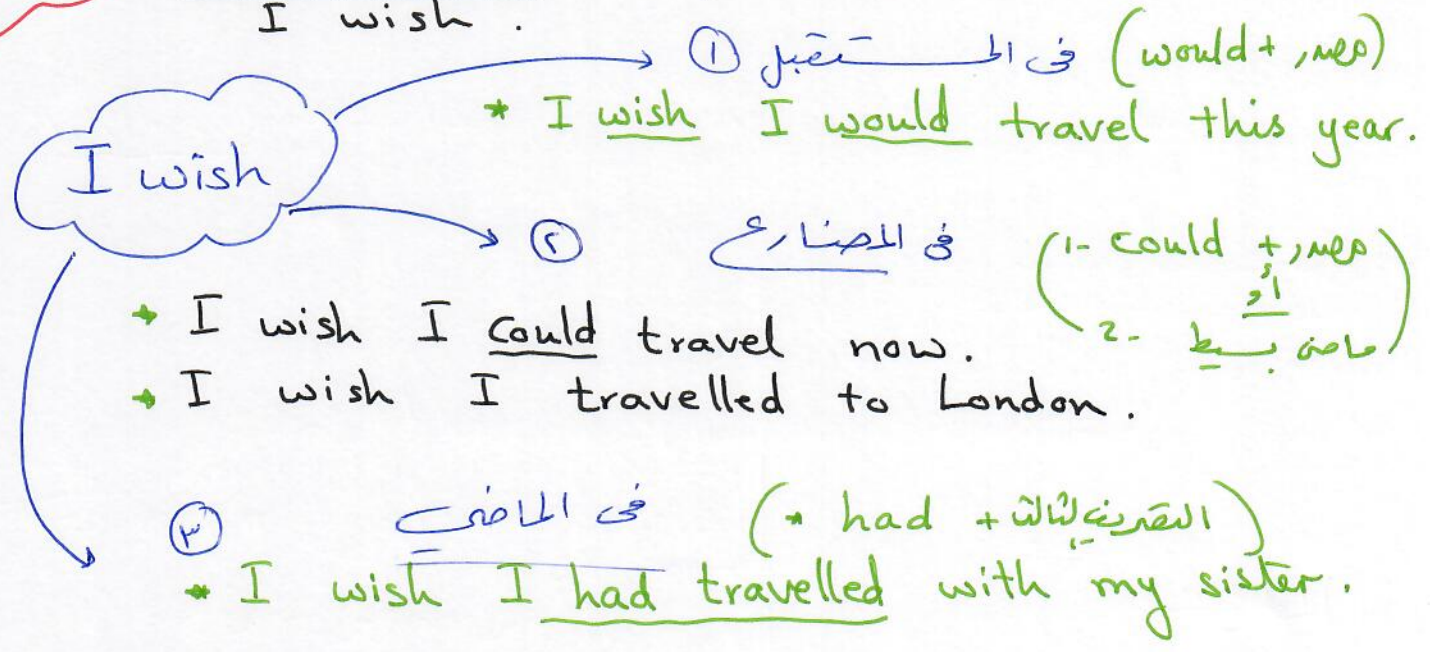 I wish .
① فى المستقبل (would + مصدر)
* I wish I would travel this year.
I wish
② فى المضارع (1- could + مصدر
أو
2- ماضى بسيط)
I wish I could travel now.
I wish I travelled to London.
③ فى الماضي (* had + التصريف الثالث)
* I wish I had travelled with my sister.